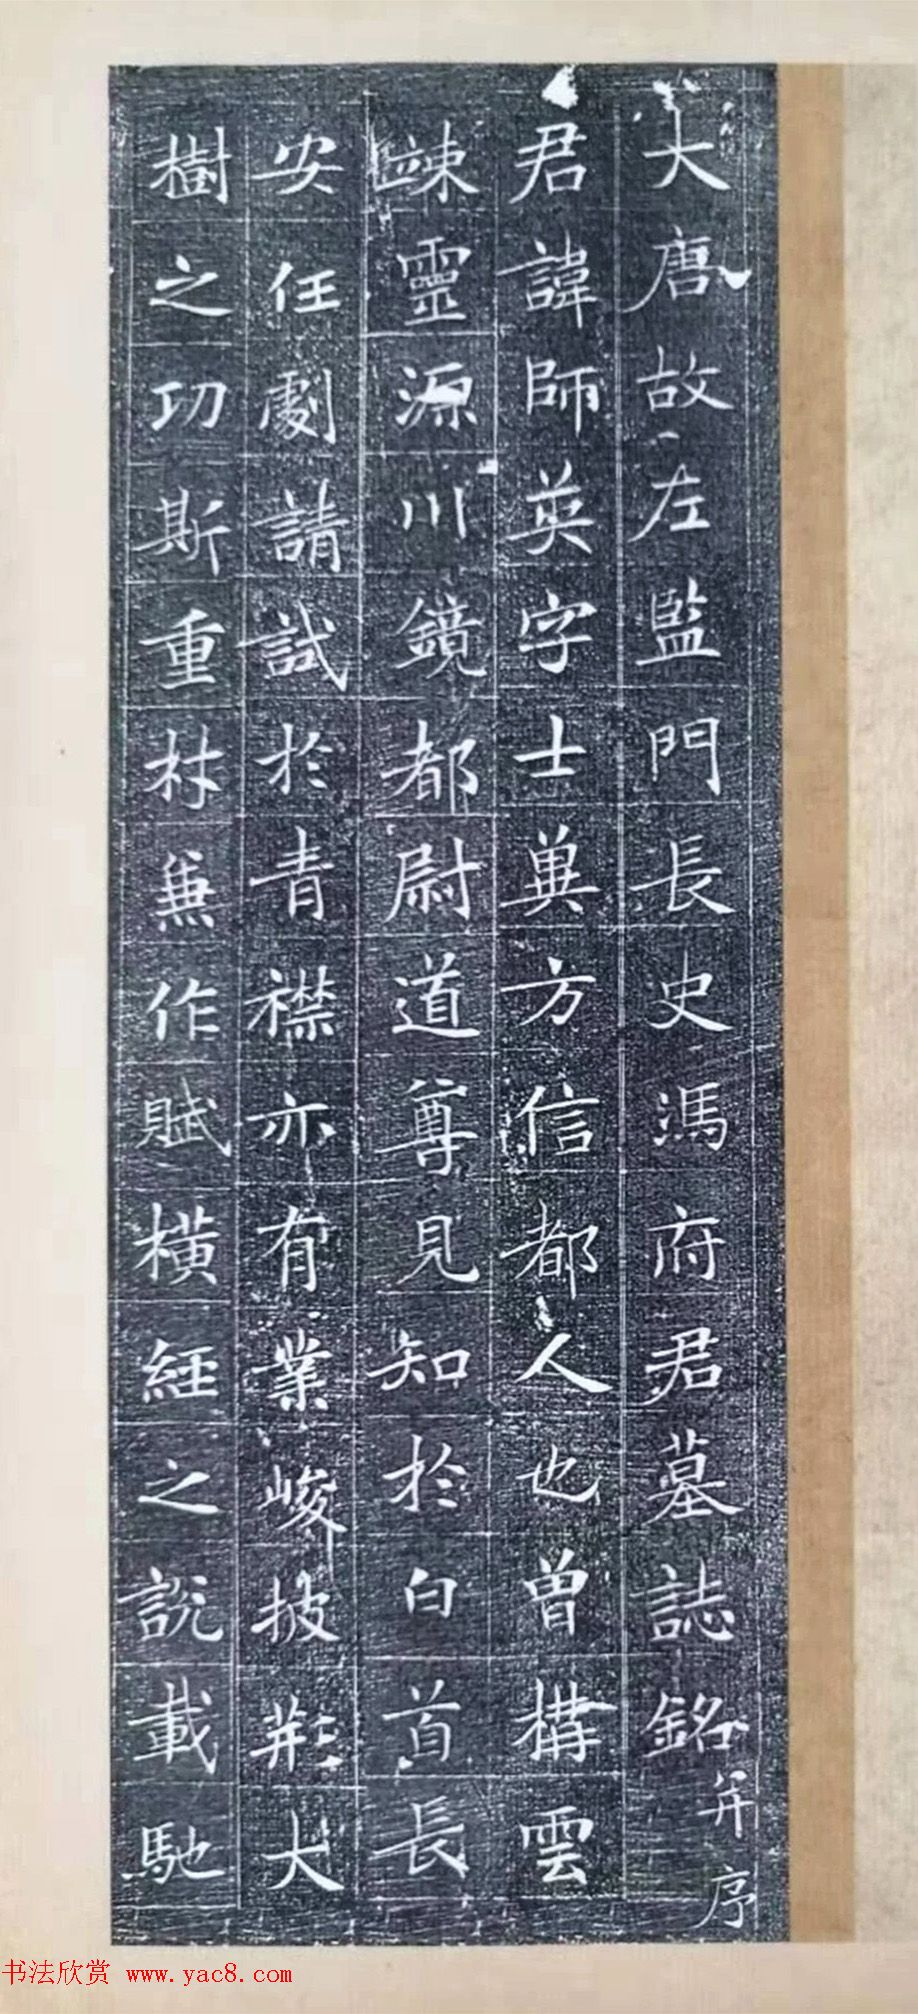 大唐故左監門長史馮府君墓誌銘并序
君諱師英字士兾方信都人也曽構雲
竦靈源川鏡都尉道尊見知於白首長
安任劇請試於青襟亦有業峻披荊大
樹之功斯重材兼作賦橫經之說載馳
书法欣赏 www.yac8.com